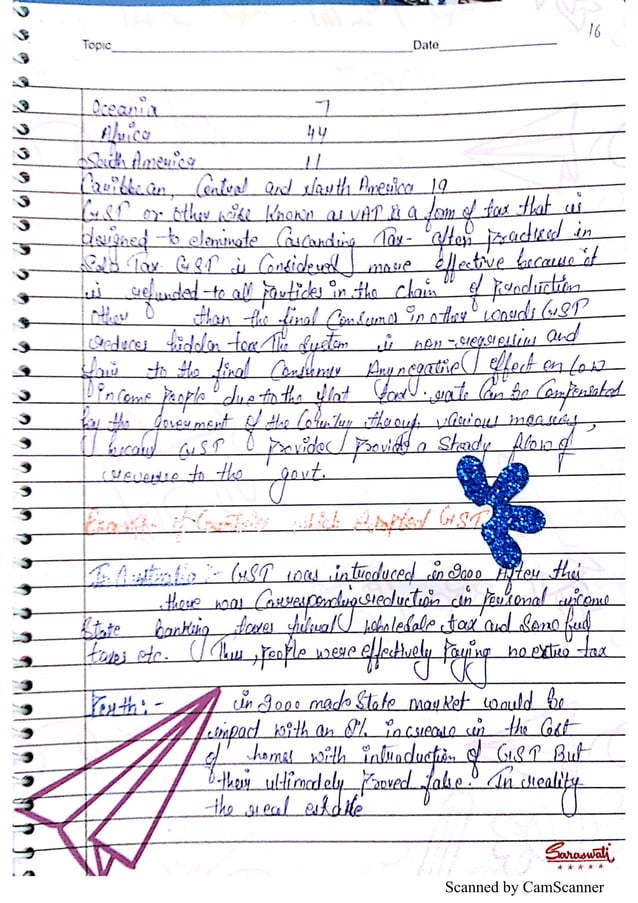 16
Topic Date
Oceania 7
Africa 44
South America 11
Caribbean, Central and North America 19
GST or other wise known as VAT is a form of tax that is
designed to eleminate Cascanding Tax- often practised in
Sold Tax GST is Considered more effective because it
is refunded to all particles in the chain of production
other than the final Consumer in other words GST
reduces hidden tax The system is non-regressive and
fair to the final Consumer Any negative effect on low
income people due to the flat tax rate can be Compensated
by the goverment of the Country through various measures,
GST provides a Steady flow of
revenue to the govt.
Examples of Countries which Adopted GST
In Australia :- GST was introduced in 2000 After this
there was Corresponding reduction in personal income
State banking taxes wholesale tax and Some fuel
taxes etc. Thus, people were effectively paying no extra tax
Perth:- in 2000 made State market would be
impact with an 8% increase in the Cost
of homes with introduction of GST But
their ultimadely proved false. In reality
the real estate
Saraswati
Scanned by CamScanner